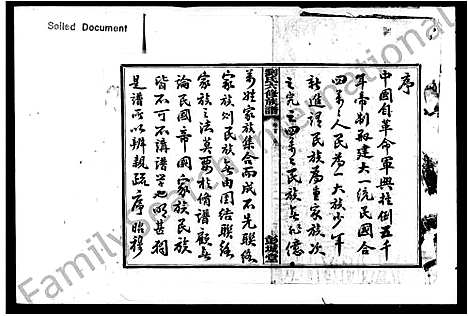 Soiled Document
序
中國自革命軍興推倒五千
年帝制取建大一統民國合
四萬萬人民為一大族少年
新進謂民族為重家族次
之究之四萬萬民族無非億
劉氏六修族譜
彭城堂
萬姓家族集合而成不先聯絡
家族則民族無由團結聯絡
家族之法莫要於修譜顧無
論民國帝國家族民族
皆不可不講譜學也明甚羽
是譜所以辨親疏序昭穆
FamilySearch International